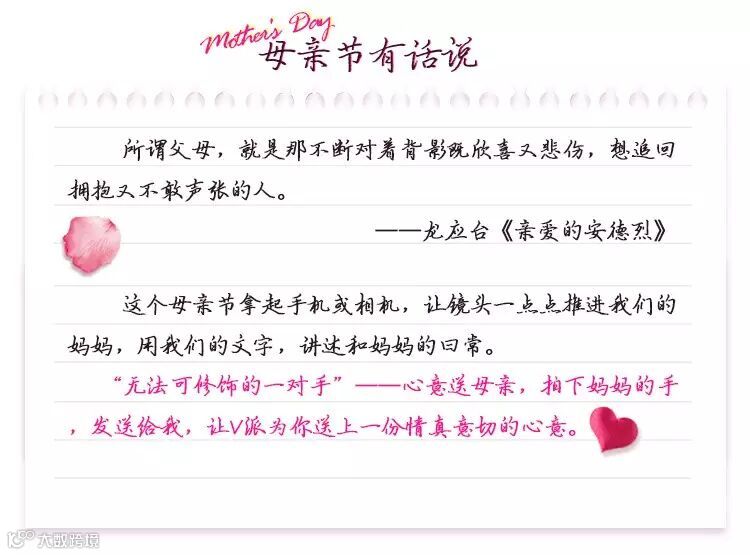 Mother's Day
母亲节有话说
所谓父母，就是那不断对着背影既欣喜又悲伤，想追回
拥抱又不敢声张的人。
——龙应台《亲爱的安德烈》
这个母亲节拿起手机或相机，让镜头一点点推进我们的
妈妈，用我们的文字，讲述和妈妈的日常。
“无法可修饰的一对手”——心意送母亲，拍下妈妈的手
，发送给我，让V派为你送上一份情真意切的心意。
大数跨境